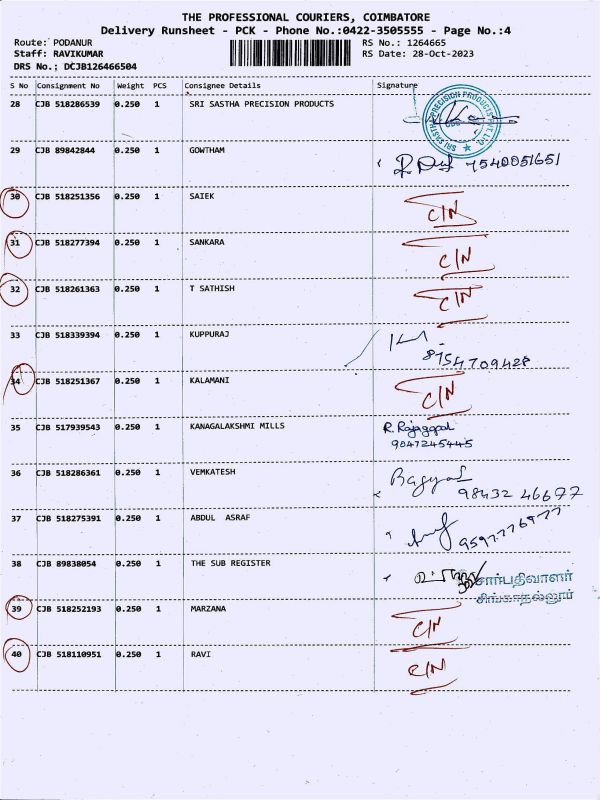 THE PROFESSIONAL COURIERS, COIMBATORE
Delivery Runsheet - PCK - Phone No.:0422-3505555 - Page No.:4
Route: PODANUR RS No.: 1264665
Staff: RAVIKUMAR RS Date: 28-Oct-2023
DRS No.; DCJB126466504
S No Consignment No Weight PCS Consignee Details Signature
28 CJB 518286539 0.250 1 SRI SASTHA PRECISION PRODUCTS
29 CJB 89842844 0.250 1 GOWTHAM 7540051651
30 CJB 518251356 0.250 1 SAIEK C/N
31 CJB 518277394 0.250 1 SANKARA C/N
32 CJB 518261363 0.250 1 T SATHISH C/N
33 CJB 518339394 0.250 1 KUPPURAJ 8754709428
34 CJB 518251367 0.250 1 KALAMANI C/N
35 CJB 517939543 0.250 1 KANAGALAKSHMI MILLS R. Rajagopal
9047245445
36 CJB 518286361 0.250 1 VEMKATESH
98432 46677
37 CJB 518275391 0.250 1 ABDUL ASRAF 9597776977
38 CJB 89838054 0.250 1 THE SUB REGISTER சார்பதிவாளர்
சிங்காநல்லூர்
39 CJB 518252193 0.250 1 MARZANA C/N
40 CJB 518110951 0.250 1 RAVI C/N